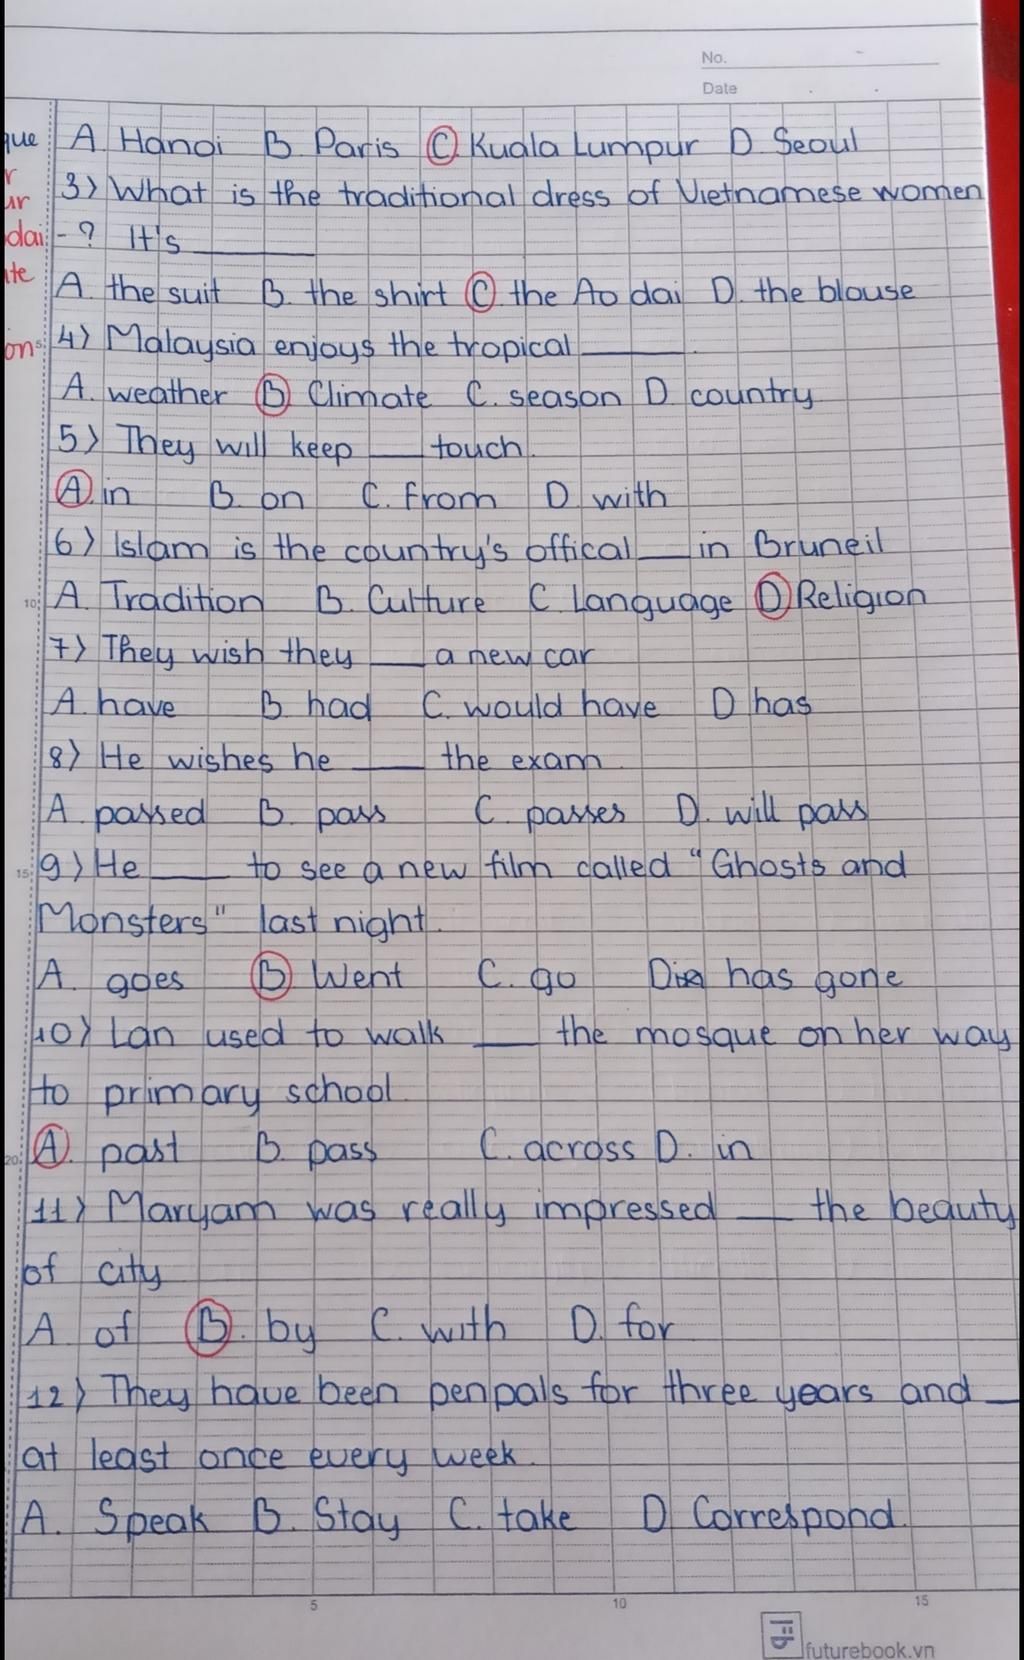 No.
Date
que A. Hanoi B. Paris C. Kuala Lumpur D. Seoul
r 3) What is the traditional dress of Vietnamese women
ur
dai - ? It's
ite A. the suit B. the shirt C the Ao dai D. the blouse
ons 4) Malaysia enjoys the tropical
A. weather B Climate C. season D. country
5) They will keep ___ touch.
A. in B. on C. from D. with
6) Islam is the country's offical ___ in Bruneil
10 A. Tradition B. Culture C. Language D Religion
7) They wish they ___ a new car
A. have B. had C. would have D has
8) He wishes he ___ the exam
A. passed B. pass C. passes D. will pass
15 9) He ___ to see a new film called "Ghosts and
Monsters" last night.
A. goes B Went C. go D has gone
10) Lan used to walk ___ the mosque on her way
to primary school
20 A. past B. pass C. across D. in
11) Maryam was really impressed ___ the beauty
of city
A. of B. by C. with D. for
12) They have been penpals for three years and ___
at least once every week.
A. Speak B. Stay C. take D Correspond.
5 10 15
futurebook.vn